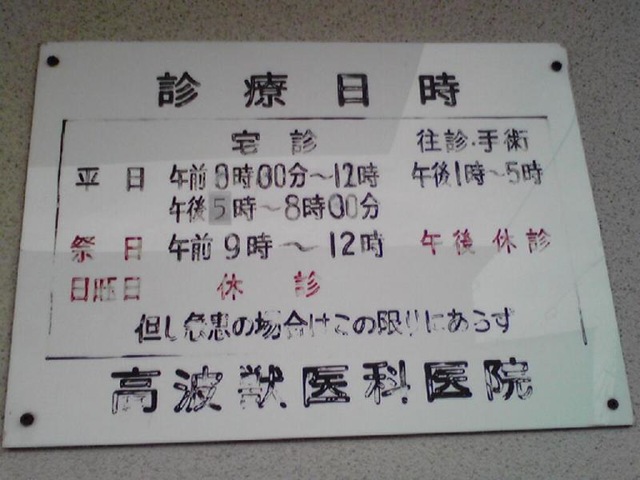 診療日時
宅診 往診・手術
平日 午前8時00分～12時 午後1時～5時
午後5時～8時00分
祭日 午前9時～12時 午後休診
日曜日 休診
但し急患の場合はこの限りにあらず
高波獣医科医院